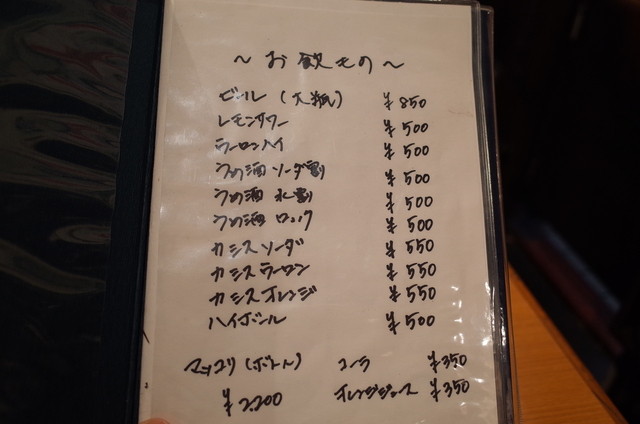 ～お飲もの～
ビール (大瓶) ¥850
レモンサワー ¥500
ウーロンハイ ¥500
うめ酒 ソーダ割 ¥500
うめ酒 水割 ¥500
うめ酒 ロック ¥500
カシスソーダ ¥550
カシスウーロン ¥550
カシスオレンジ ¥550
ハイボール ¥500
マッコリ(ボトル) コーラ ¥350
¥2,200 オレンジジュース ¥350